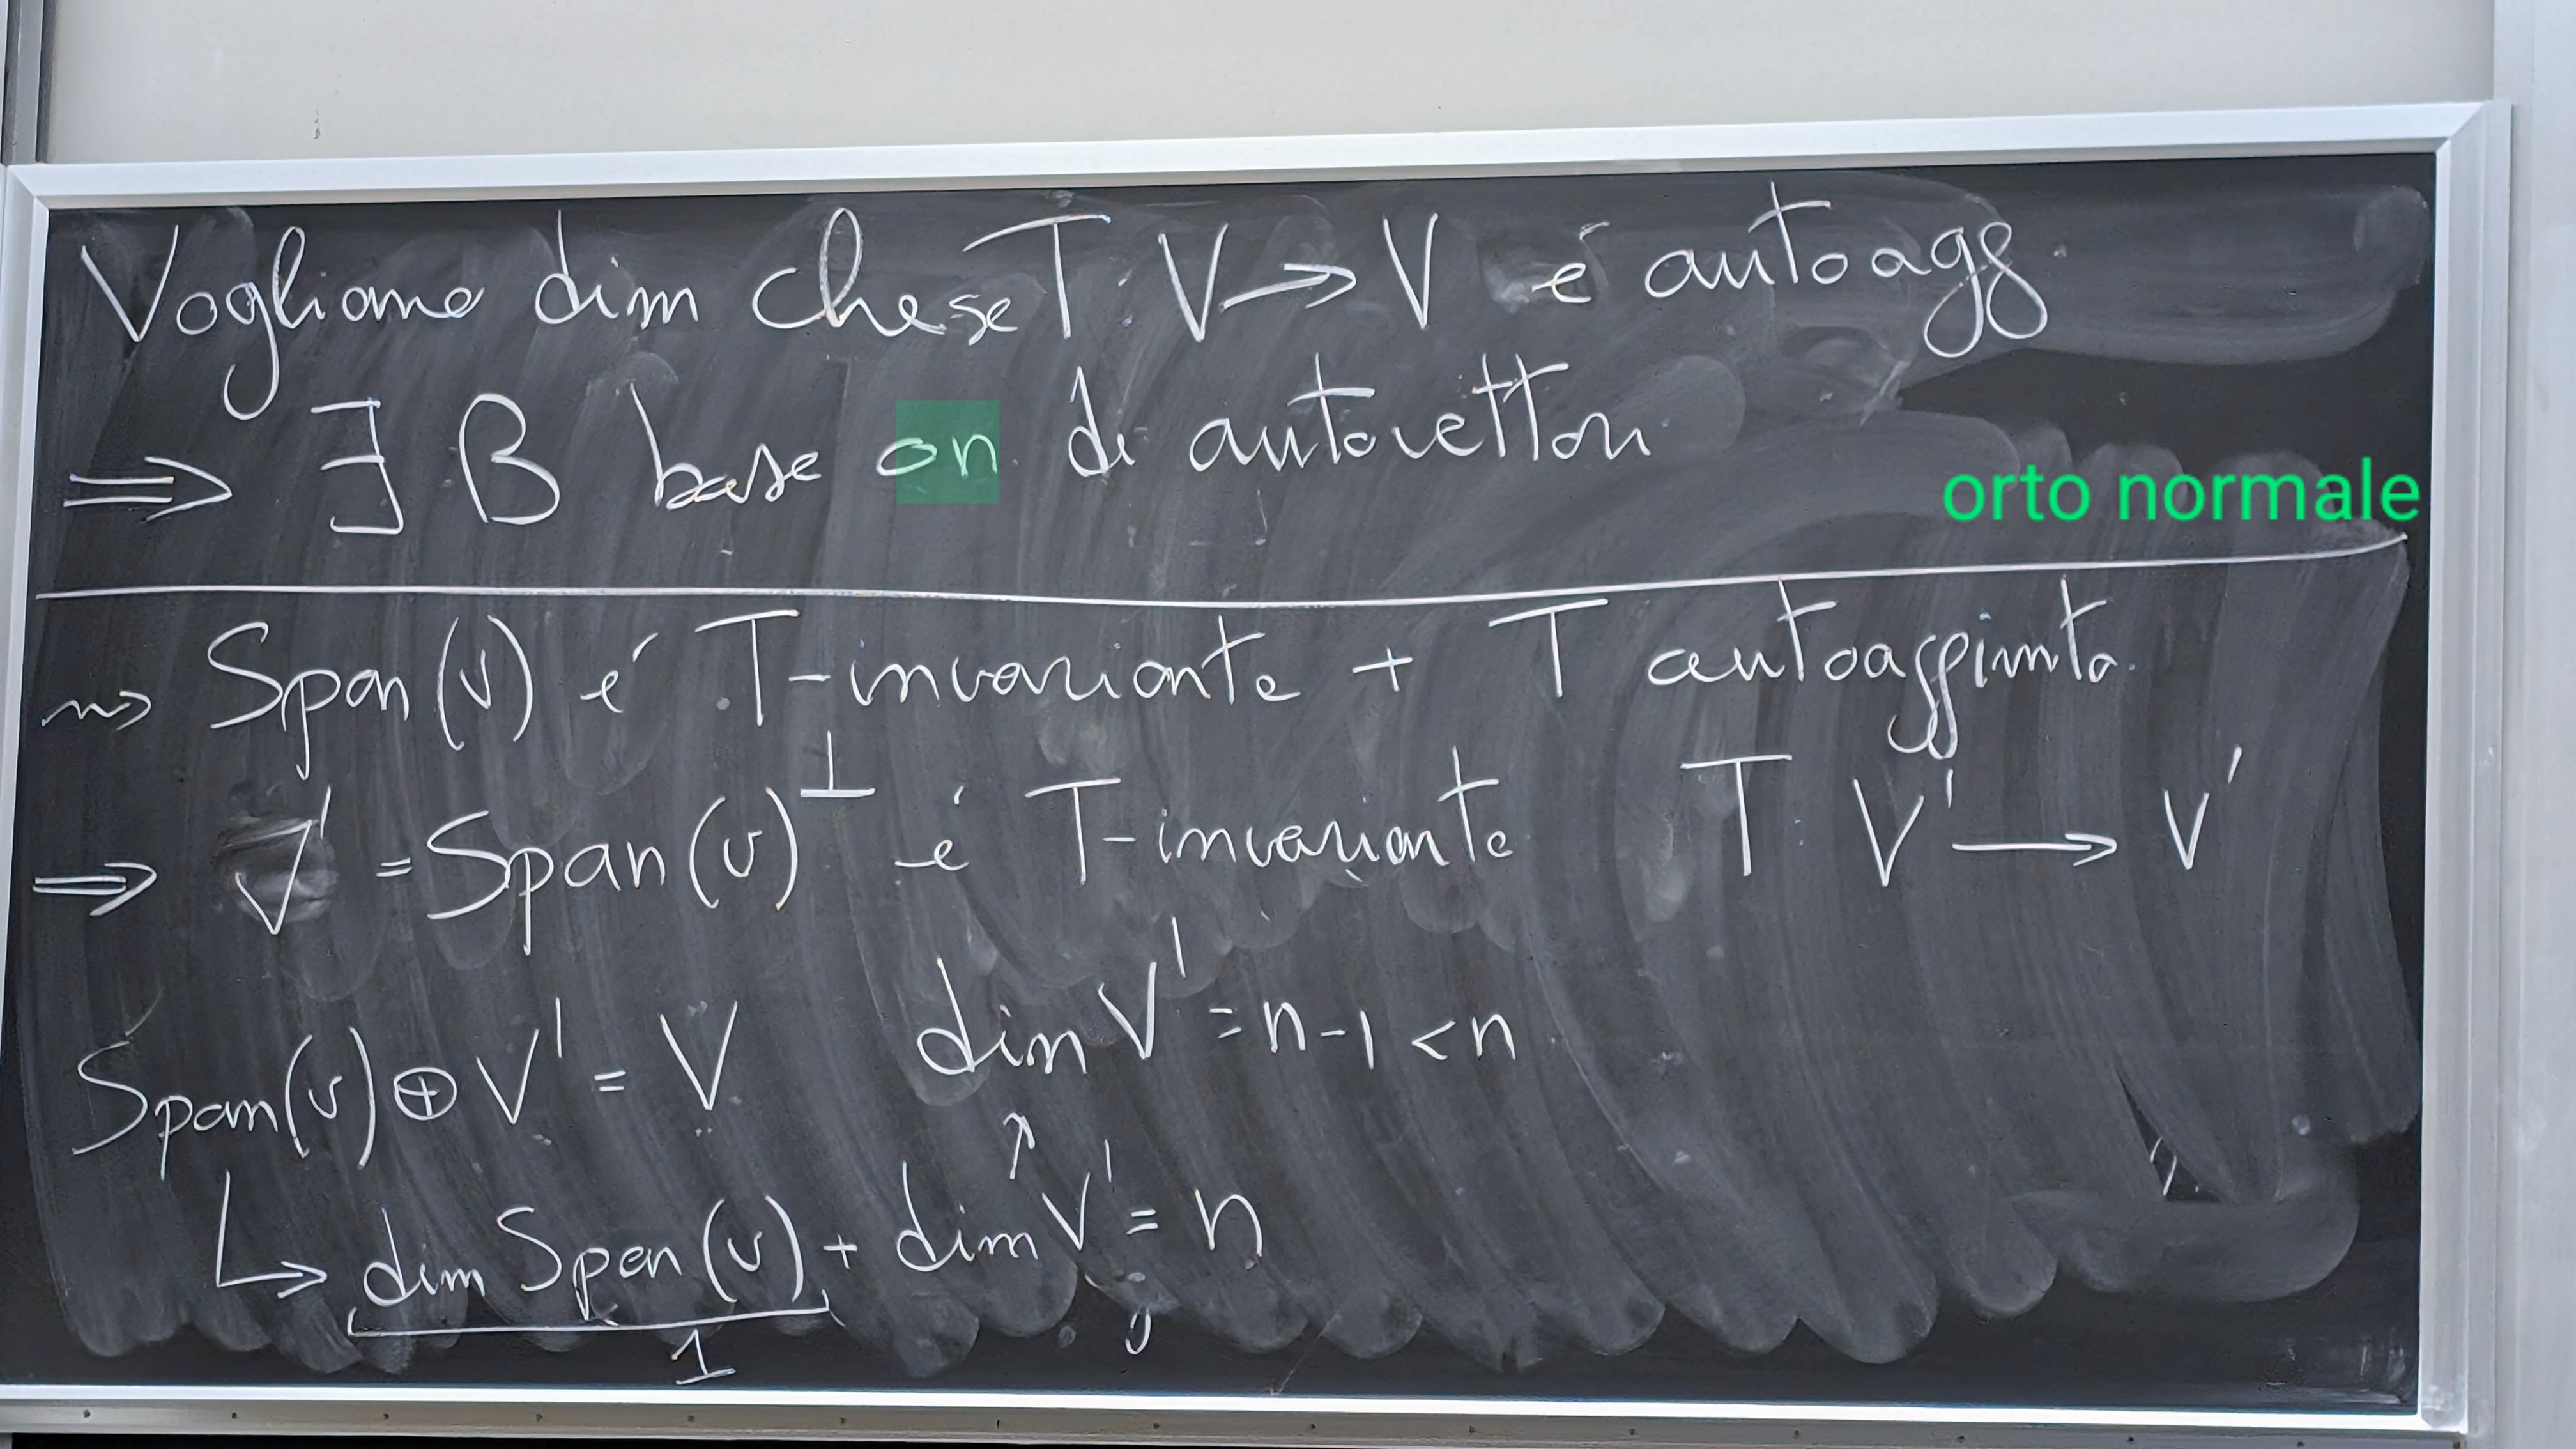 Vogliamo dim che se T: V → V é autoagg.
⇒ ∃ B base on. di autovettori
orto normale
⇝ Span(v) é T-invariante + T autoaggiunta
⇒ V' = Span(v)⊥ é T-invariante T: V' → V'
Span(v) ⊕ V' = V dim V' = n-1 < n
↳ dim Span(v) + dim V' = n
1